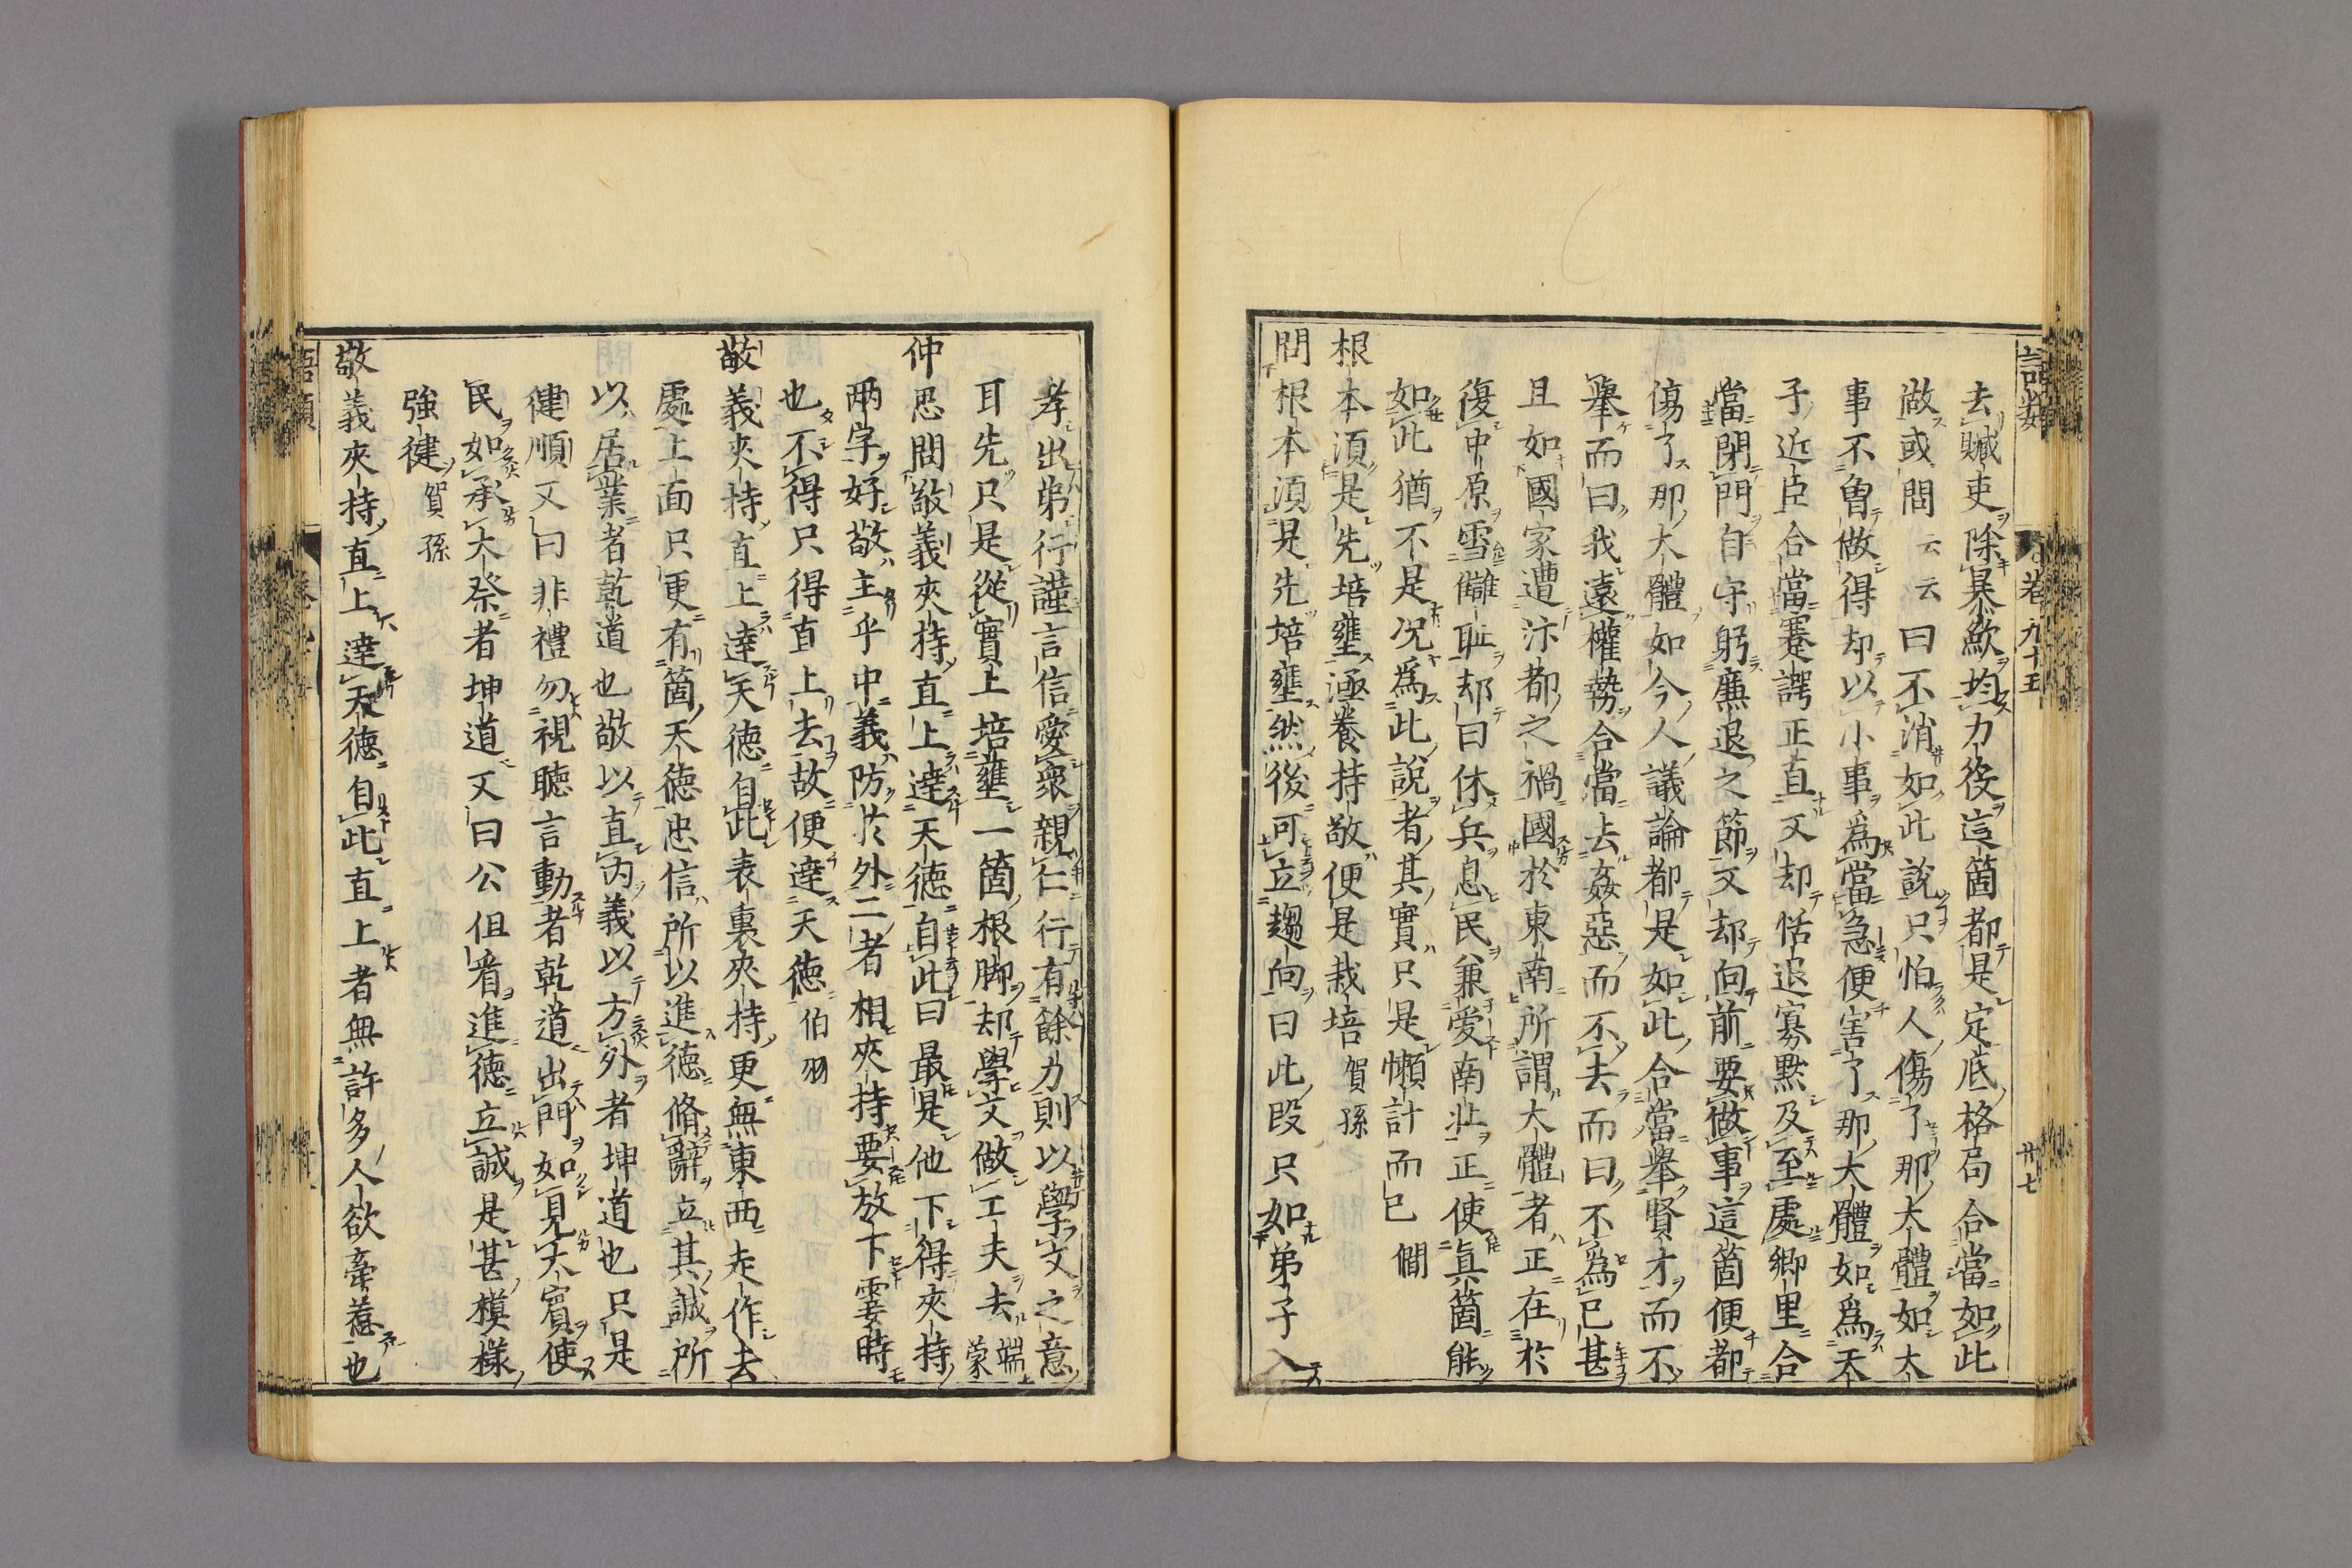 語類
卷九十五
廿七
去贓吏除暴歛均力役這箇都是定底格局合當如此
做或問云云曰不消如此說只怕人傷了那大體如大
事不曾做得却以小事爲當急便害了那大體如爲天
子近臣合當蹇諤正直又却恬退寡默及至處鄉里合
當閉門自守躬廉退之節又却向前要做事這箇便都
傷了那大體如今人議論都是如此合當舉賢才而不
舉而曰我遠權勢合當去姦惡而不去而曰不爲已甚
且如國家遭汴都之禍國於東南所謂大體者正在於
復中原雪讎恥却曰休兵息民兼愛南北正使眞箇能
如此猶不是况爲此說者其實只是懶計而已 僩
根本須是先培壅涵養持敬便是栽培 賀孫
問根本須是先培壅然後可立趨向曰此段只如弟子入
孝出弟行謹言信愛衆親仁行有餘力則以學文之意
耳先只是從實上培壅一箇根脚却學文做工夫去 端蒙
仲思問敬義夾持直上達天徳自此曰最是他下得夾持
兩字好敬主乎中義防於外二者相夾持要放下霎時
也不得只得直上去故便達天徳 伯羽
敬義夾持直上達天徳自此表裏夾持更無東西走作去
處上面只更有箇天徳忠信所以進徳脩辭立其誠所
以居業者乾道也敬以直内義以方外者坤道也只是
健順又曰非禮勿視聽言動者乾道出門如見大賓使
民如承大祭者坤道又曰公但看進徳立誠是甚模樣
強健 賀孫
敬義夾持直上達天徳自此直上者無許多人欲牽惹也
語類